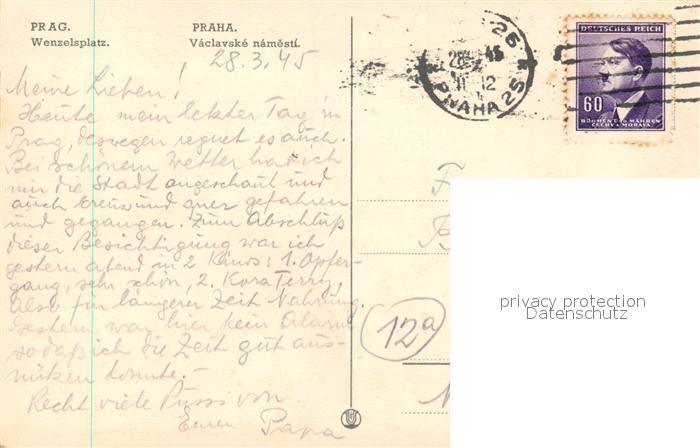 PRAG. PRAHA.
Wenzelsplatz. Václavské náměstí.
28.3.45
Meine Lieben!
Heute mein letzter Tag in
Prag, deswegen regnet es auch.
Bei schönem Wetter hab ich
mir die Stadt angeschaut und
auch kreuz und quer gefahren
und gegangen. Zum Abschluß
dieser Besichtigung war ich
gestern abend in 2 Kinos: 1. Opfer-
gang, sehr schön, 2. Kora Terry,
also für längerer Zeit Nahrung.
Gestern war hier kein Alarm
so daß ich die Zeit gut aus-
nützen konnte. -
Recht viele Pussi von
Euren Papa
PRAHA 25
DEUTSCHES REICH
60
BÖHMEN U. MÄHREN
ČECHY A MORAVA
F
12a
privacy protection
Datenschutz